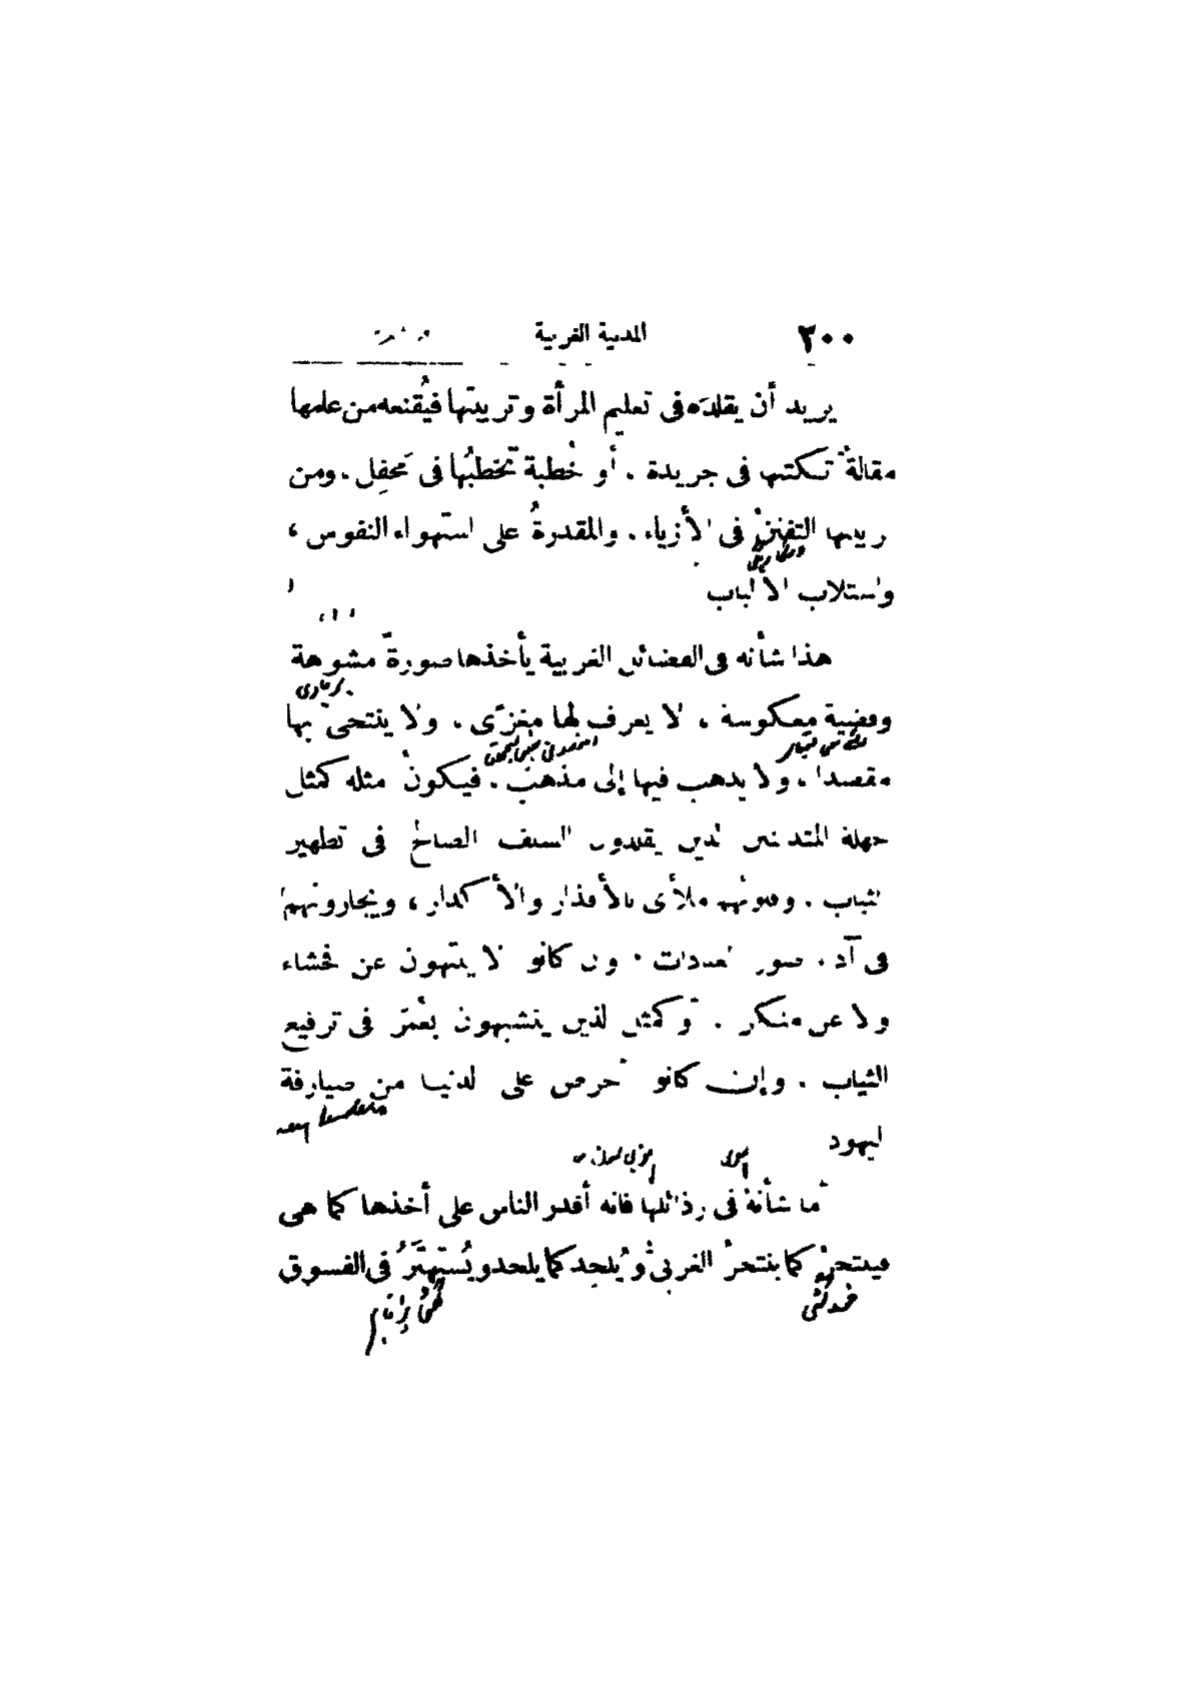 ٢٠٠ المدنية الغربية
يريد أن يقلدَه فى تعليم المرأة وتربيتها فيُقنعه من علمها
مقالةٌ تكتبها فى جريدة . أو خُطبة تخطبُها فى مَحفِل . ومن
تربيتها التفننُ فى الأزياء . والمقدرةُ على استهواء النفوس ،
واستلاب الألباب
هذا شأنه فى الفضائل الغربية يأخذها صورةً مشوهة
وقضية معكوسة ، لا يعرف لها مغزًى . ولا ينتحى بها
مقصدا ، ولا يذهب فيها إلى مذهب . فيكونُ مثله كمثل
جهلة المتدينين الذين يقلدون السلف الصالح فى تطهير
الثياب . وقلوبُهم ملأى بالأقذار والأكدار ، ويجارونهم
فى أداء صور العبادات . وإن كانوا لا ينتهون عن فحشاء
ولا عن منكر . وكمثل الذين يتشبهون بعُمَر فى ترقيع
الثياب . وإن كانوا أحرص على الدنيا من صيارفة
اليهود
أما شأنهُ فى رذائلها فانه أقدر الناس على أخذها كما هى
فينتحرُ كما ينتحرُ الغربىُّ ويُلحِد كما يلحد ويُستهتَرُ فى الفسوق